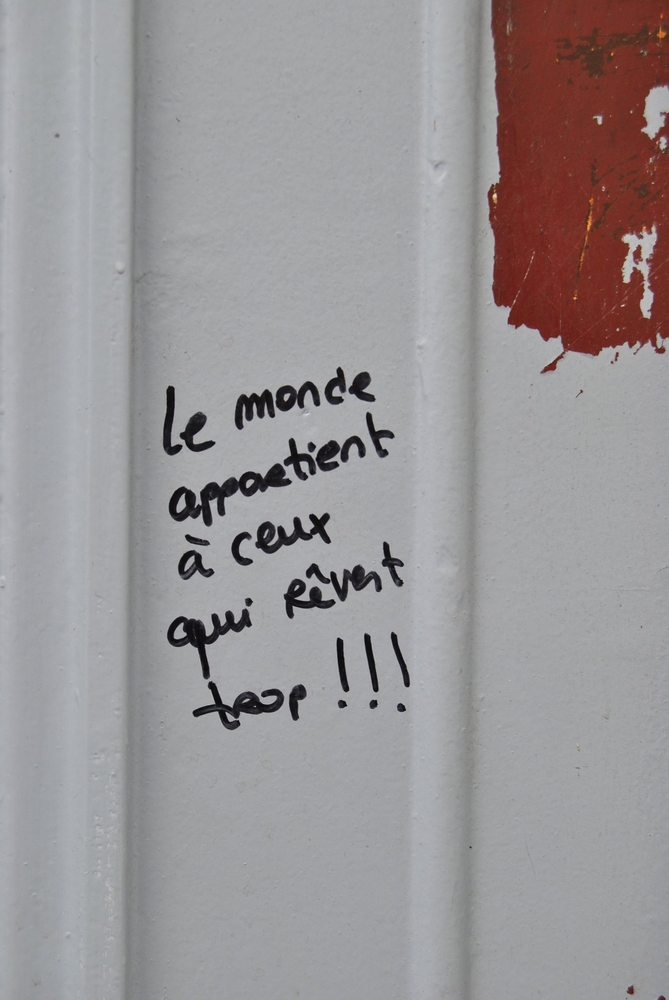 le monde
appartient
à ceux
qui rêvent
trop !!!